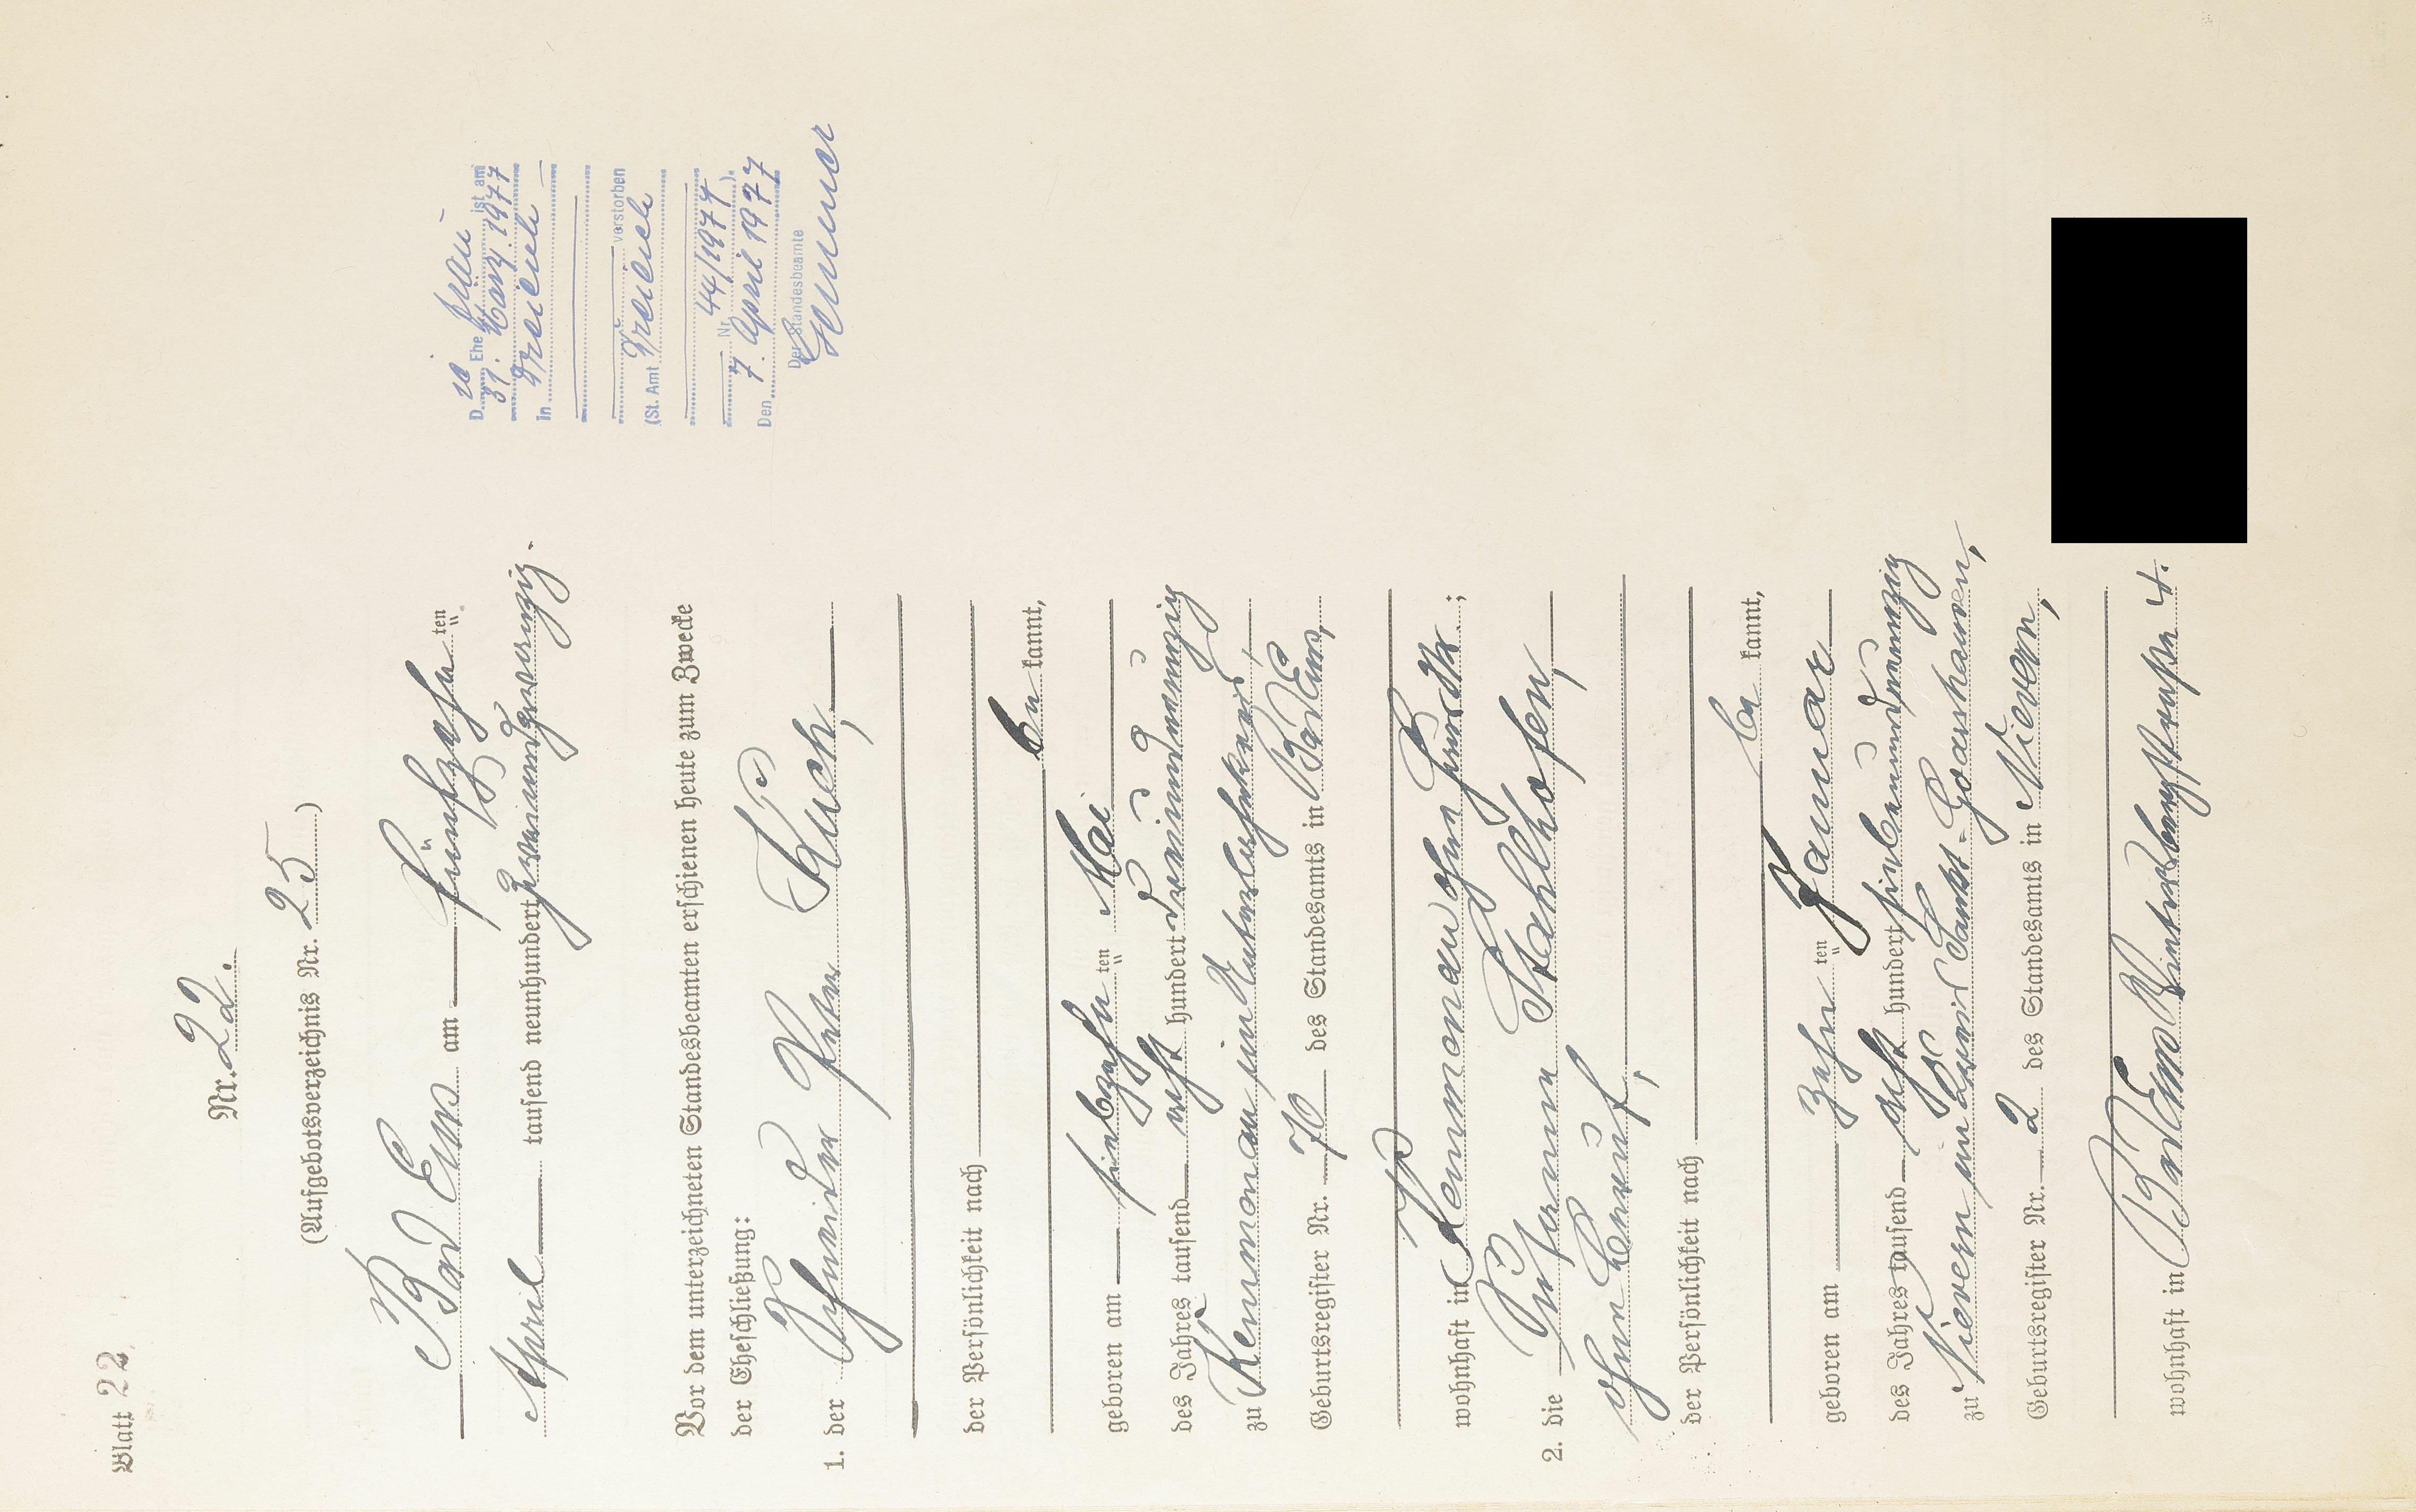 Blatt 22
Nr. 22.
(Aufgebotsverzeichnis Nr. 25)
Bad Ems am fünfzehn ten
April tausend neunhundert zweiundzwanzig.
Vor dem unterzeichneten Standesbeamten erschienen heute zum Zwecke
der Eheschließung:
1. der Schneider Peter Kuch,
der Persönlichkeit nach
be kannt,
geboren am siebzehn ten Mai
des Jahres tausend acht hundert dreiundneunzig
zu Kemmenau im Unterlahnkreis,
Geburtsregister Nr. 70 des Standesamts in Bad Ems,
wohnhaft in Kemmenau ohne ;
2. die Johanna Stahlhofen,
ohne Beruf,
der Persönlichkeit nach
be kannt,
geboren am zehn ten Januar
des Jahres tausend acht hundert siebenundneunzig
zu Nievern im Kreis Sankt-Goarshausen,
Geburtsregister Nr. 2 des Standesamts in Nievern,
wohnhaft in Bad Ems Wintersbergstraße 4.
Die Ehefrau ist am
31. März 1977
in Dreieich
verstorben
(St. Amt Dreieich
Nr. 44/1977).
Den 7. April 1977
Der Standesbeamte